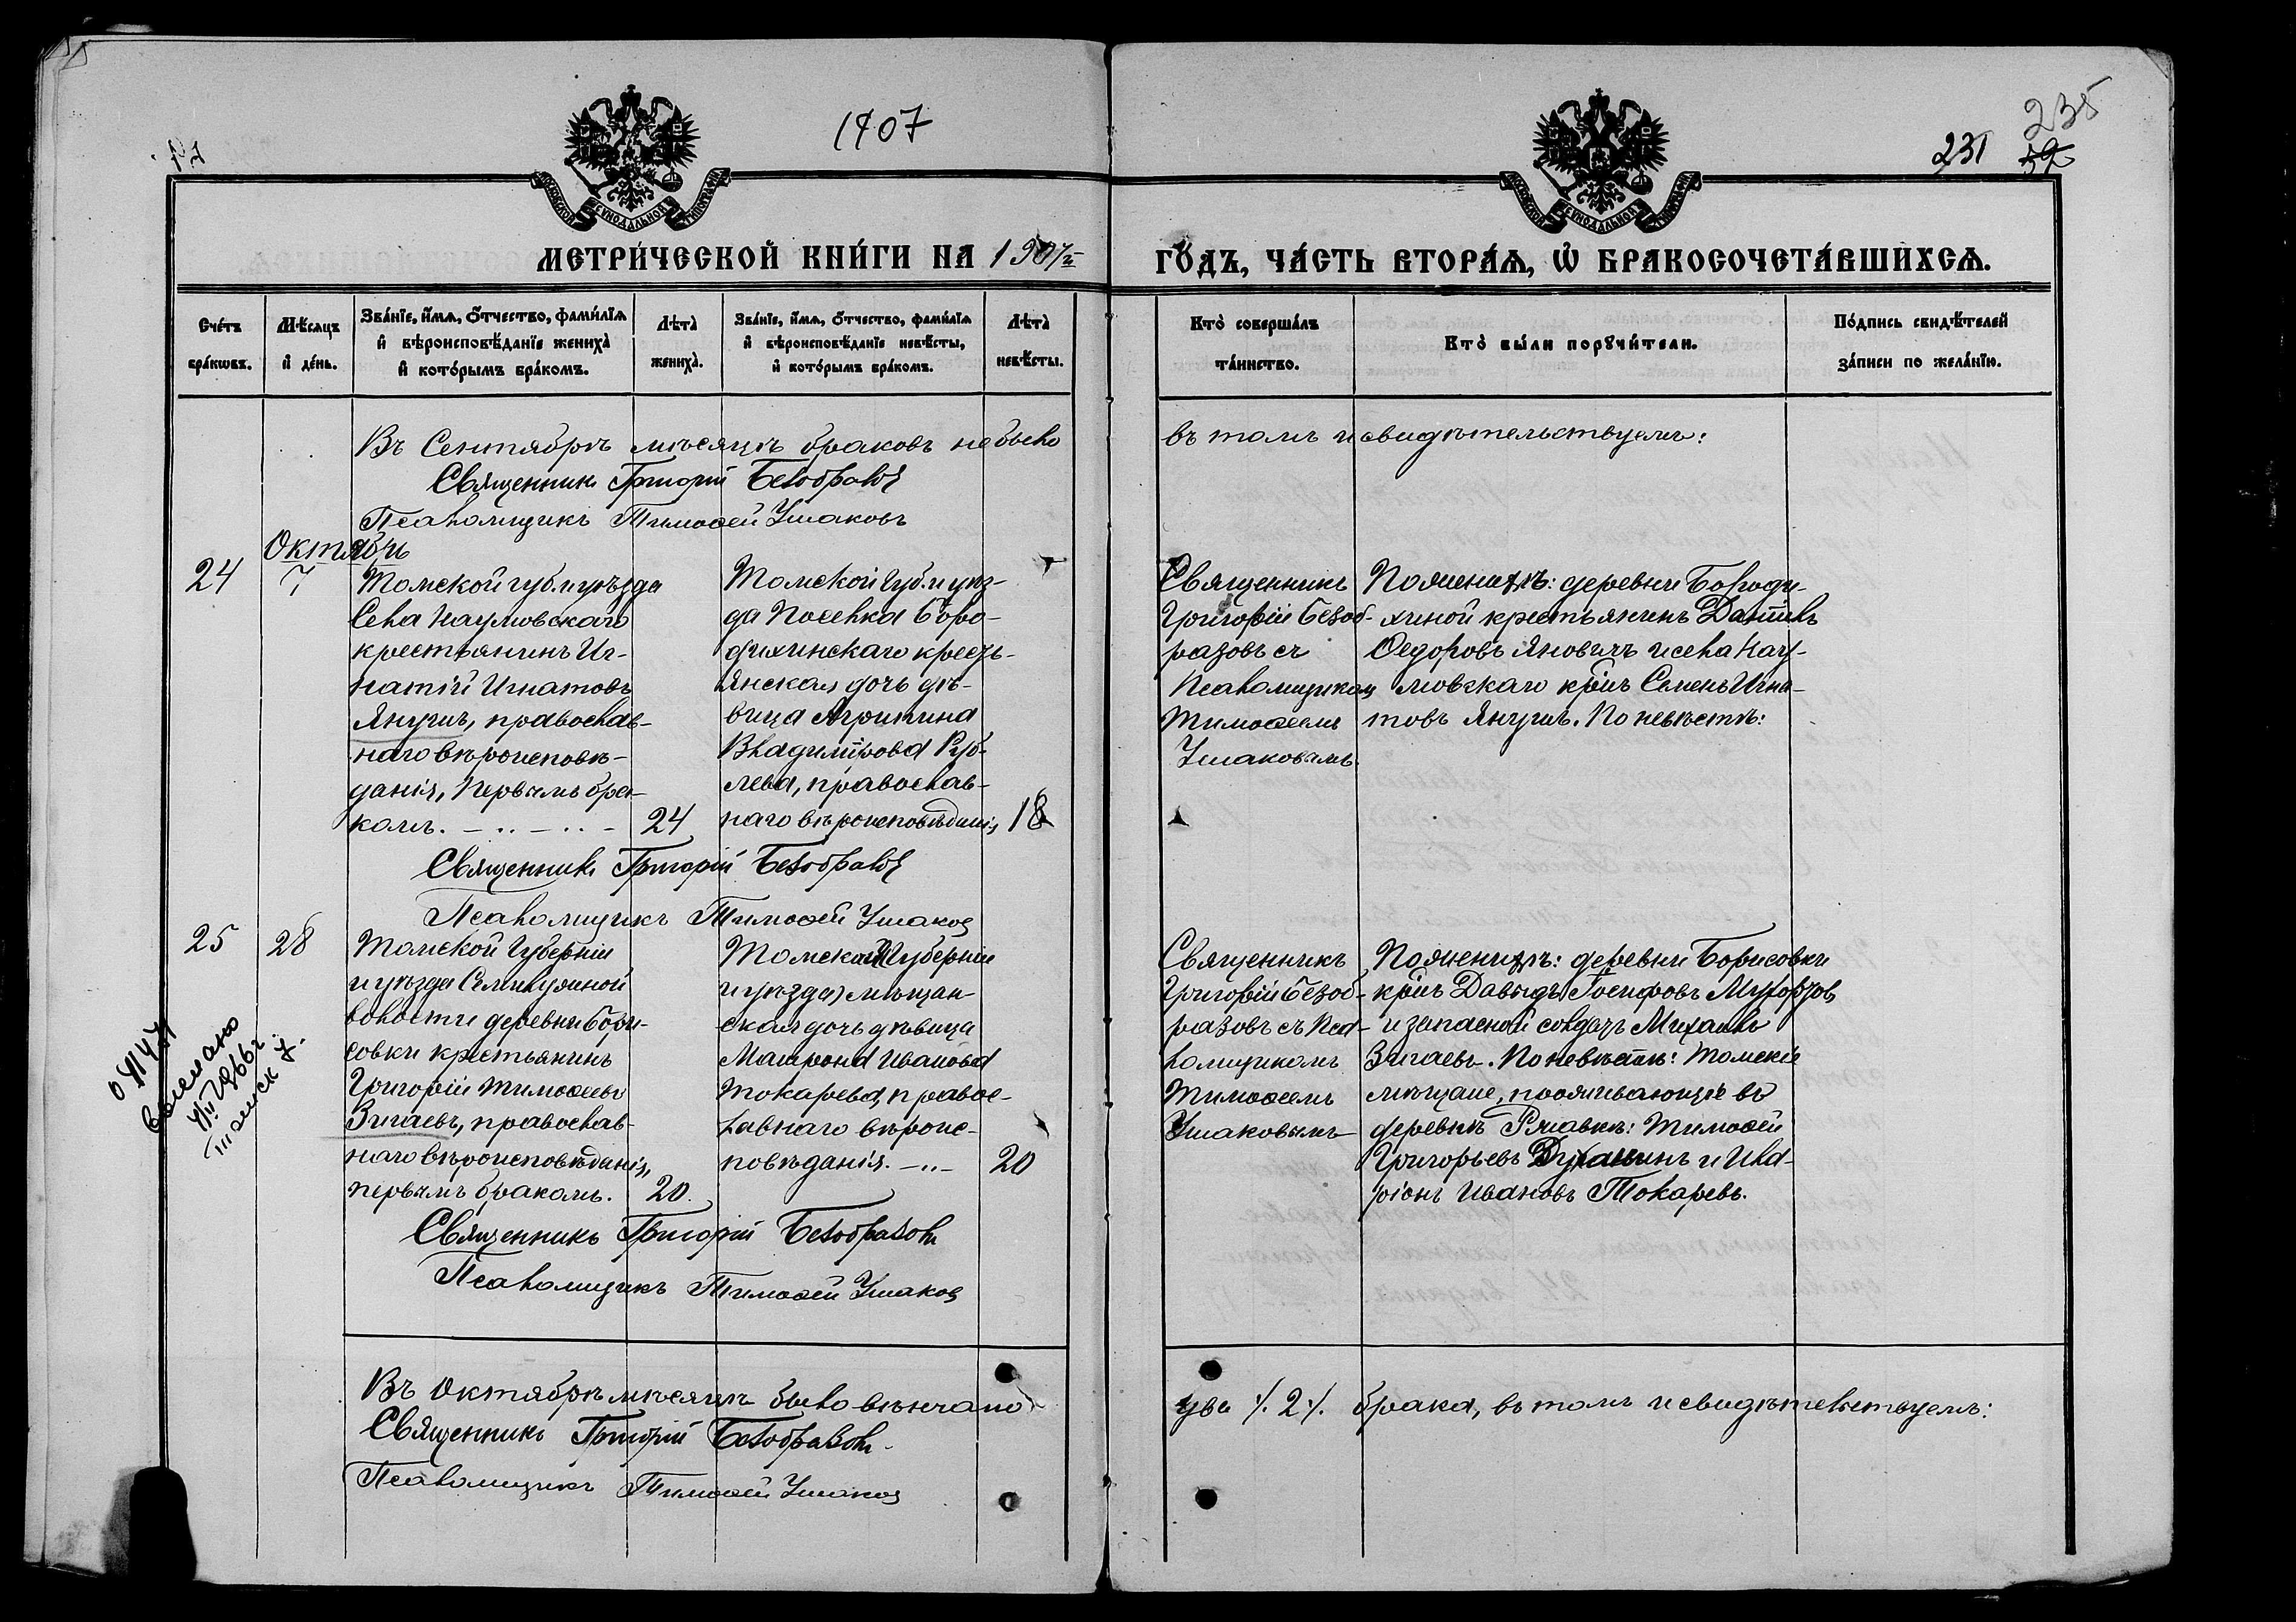 1907
231
235
МЕТРИ́ЧЕСКОЙ КНИ́ГИ НА 1907й
ГО́ДЪ, ЧА́СТЬ ВТОРА́Я, Ѽ БРАКОСОЧЕТА́ВШИХСЯ.
Сче́тъ бра́кѡвъ.
Мѣ́сяцъ и де́нь.
Зва́нїе, и́мя, ѻ́тчество, фами́лїя и вѣроисповѣ́данїе жениха̀ и кото́рымъ бра́комъ.
Лѣта̀ жениха̀.
Зва́нїе, и́мя, ѻ́тчество, фами́лїя и вѣроисповѣ́данїе невѣ́сты, и кото́рымъ бра́комъ.
Лѣта̀ невѣ́сты.
Кто̀ соверша́лъ та́инство.
Кто̀ бы́ли порꙋчи́тели.
По́дпись свидѣ́телей за́писи по жела́нїю.
Въ Сентябрѣ мѣсяцѣ браковъ не было
въ томъ и свидѣтельствуемъ:
Священникъ Григорій Безобразовъ
Псаломщикъ Тимоѳей Ушаковъ
Октябрь
24
7
Томской губ. и уѣзда
Села Наумовскаго
крестьянинъ Иг-
натій Игнатовъ
Янушъ, православ-
наго вѣроисповѣ-
данія, первымъ бра-
комъ.
24
Томской Губ. и уѣз-
да Поселка Боро-
дихинскаго кресть-
янская дочь дѣ-
вица Агрипина
Владимірова Руб-
лева, православ-
наго вѣроисповѣданія
18
Священникъ
Григорій Безоб-
разовъ съ
Псаломщикомъ
Тимоѳеемъ
Ушаковымъ.
По женихѣ: деревни Бороди-
хиной крестьянинъ Даніилъ
Ѳедоровъ Яновичъ и села Нау-
мовскаго кр‑нъ Семенъ Игна-
товъ Янушъ. По невѣстѣ:
Священникъ Григорій Безобразовъ
Псаломщикъ Тимоѳей Ушаковъ
25
28
Томской Губерніи
и уѣзда Семилужной
волости деревни Бори-
совки крестьянинъ
Григорій Тимоѳеевъ
Зигаевъ, православ-
наго вѣроисповѣданія,
первымъ бракомъ.
20.
Томской Губерніи
и уѣзда, мѣщан-
ская дочь дѣвица
Матрона Иванова
Токарева, правос-
лавнаго вѣроис-
повѣданія.
20
Священникъ
Григорій Безоб-
разовъ съ Пса-
ломщикомъ
Тимоѳеемъ
Ушаковымъ
По женихѣ: деревни Борисовки
кр‑нъ Давыдъ Іосифовъ
и запасной солдатъ Михаилъ
Зигаевъ. По невѣстѣ: Томскіе
мѣщане, проживающіе въ
деревнѣ Ржавкѣ: Тимоѳей
Григорьевъ и Ила-
ріонъ Ивановъ Токаревъ.
Священникъ Григорій Безобразовъ
Псаломщикъ Тимоѳей Ушаковъ
Въ Октябрѣ мѣсяцѣ было вѣнчано
два /. 2 /. брака, въ томъ и свидѣтельствуемъ:
Священникъ Григорій Безобразовъ
Псаломщикъ Тимоѳей Ушаковъ